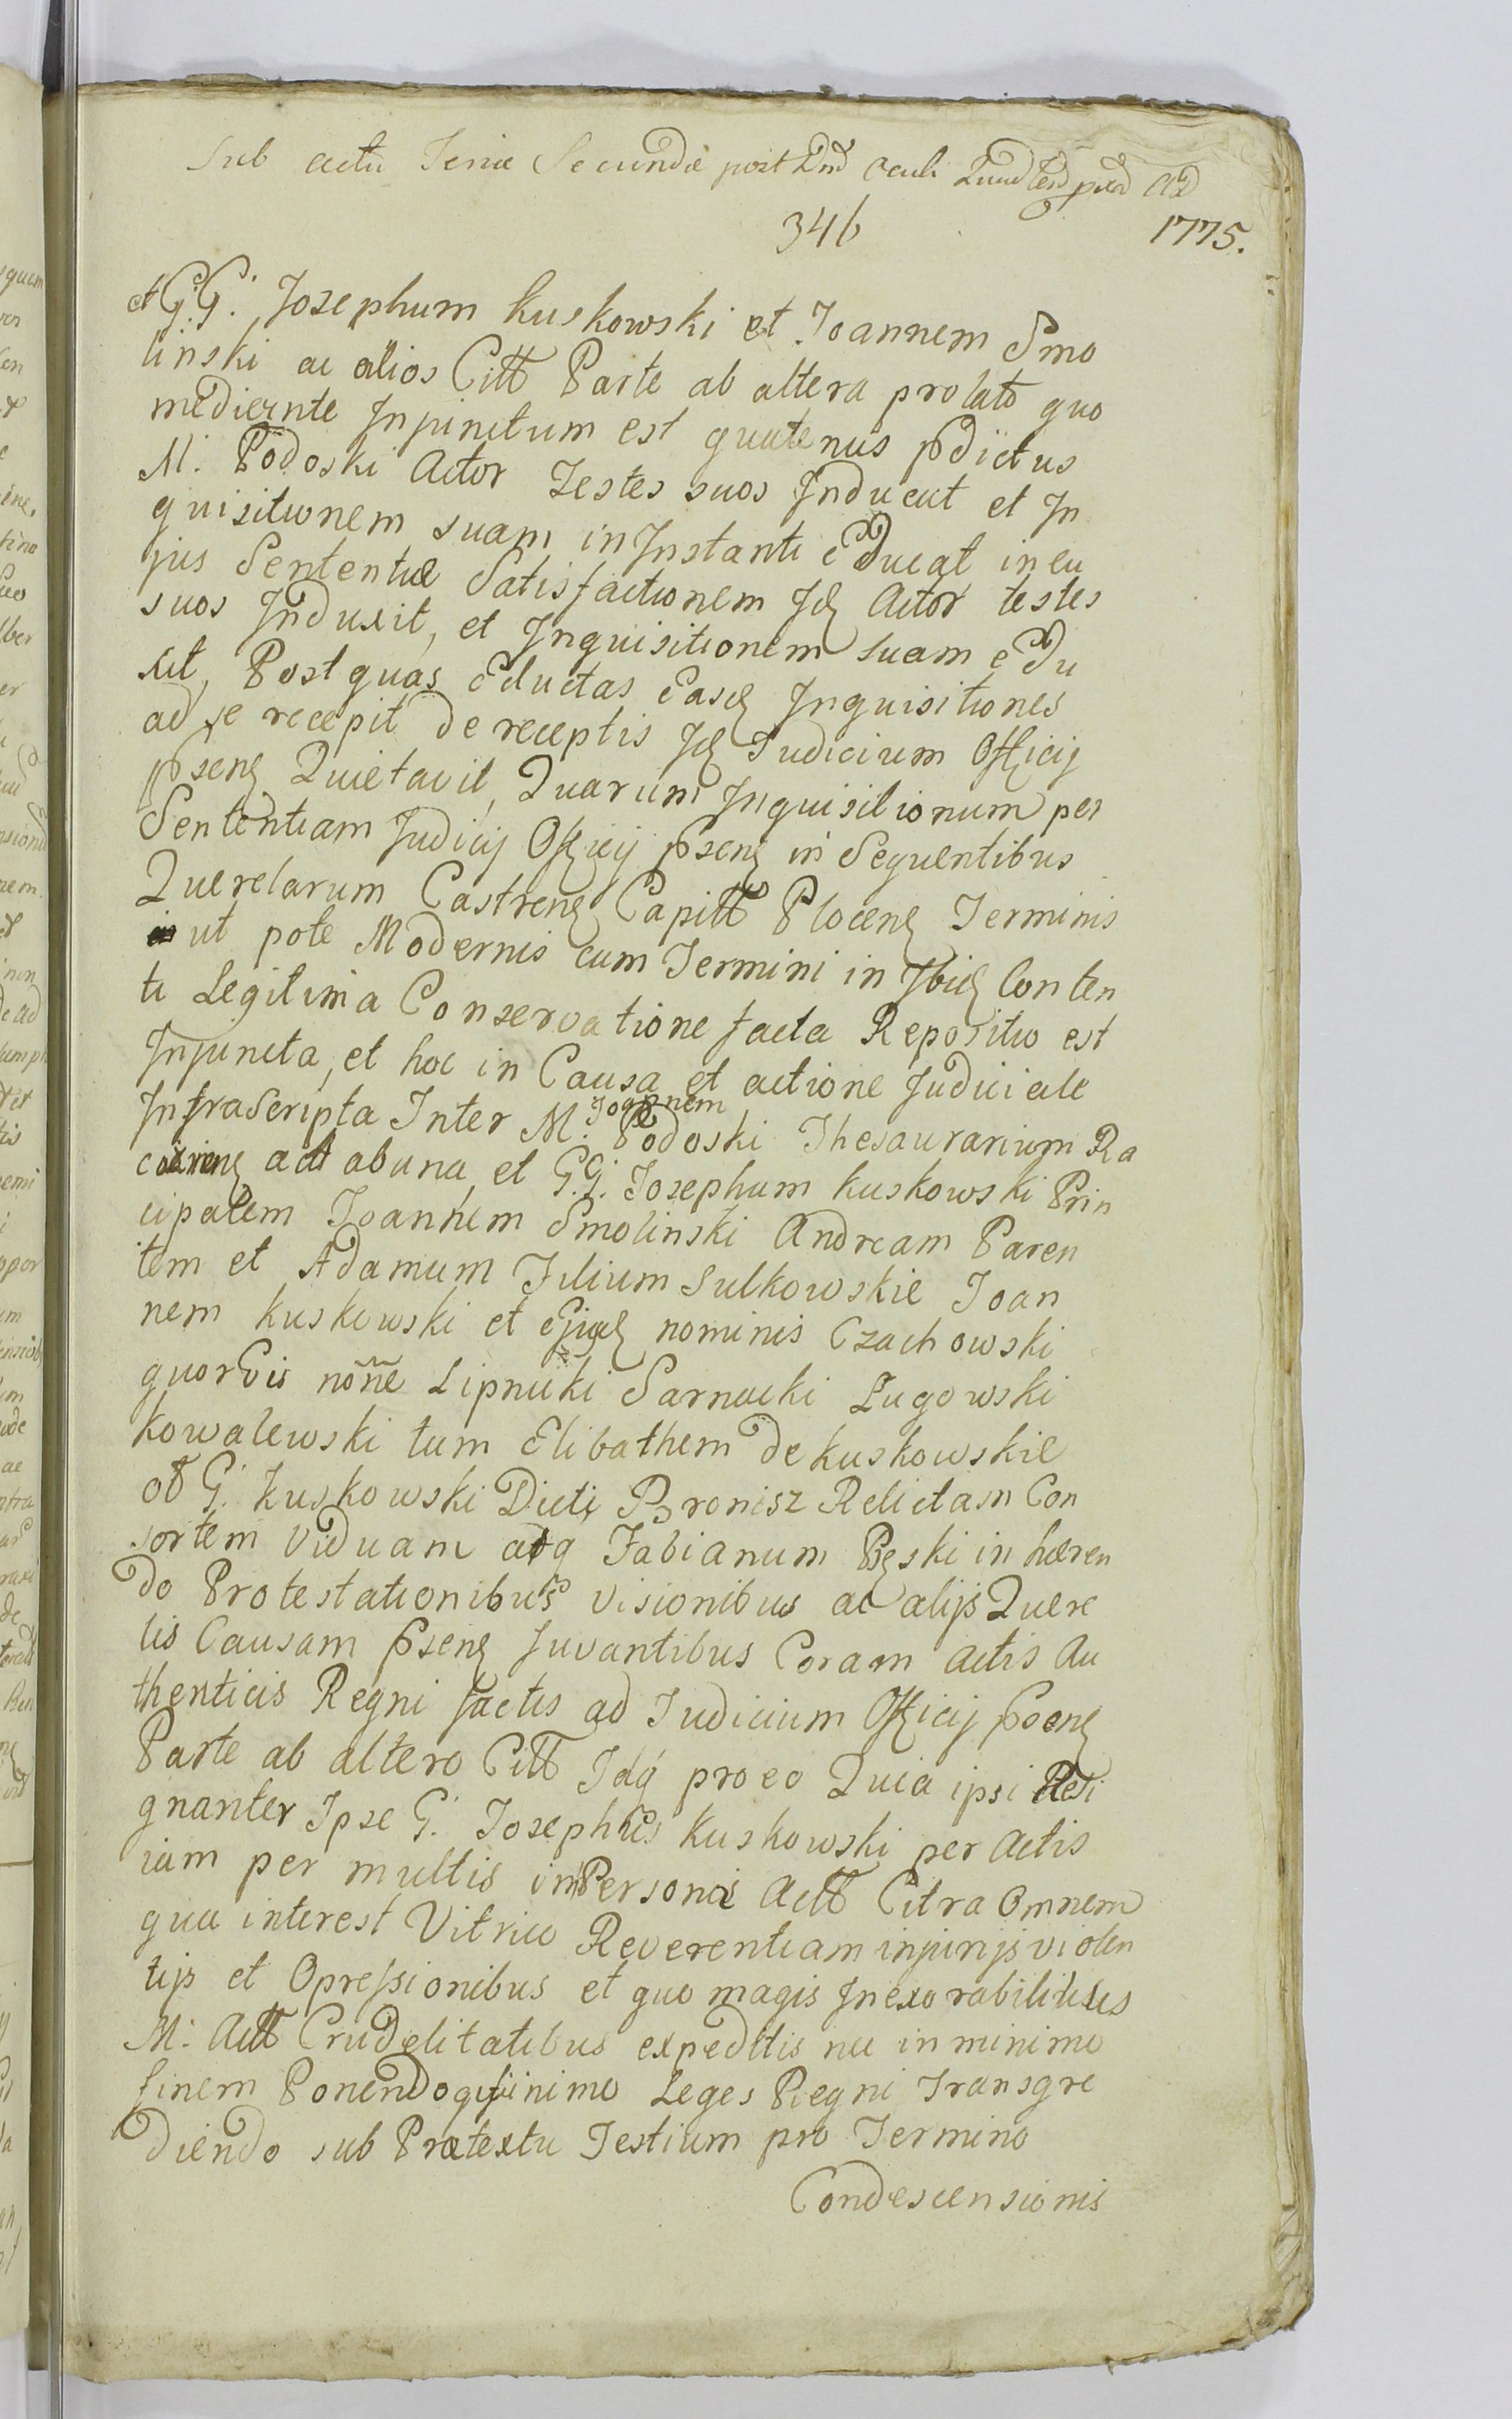 Sub actu Feriæ Secundæ post Dnd Oculi Quad
346
1775.
et G.G. Josephum Kuskowski et Joannem Smo
linski ac alios Citt Parte ab altera prolato quo
mediernte Injunctum est quatenus pdictus
M. Podoski Actor Testes suos Inducat et In
quisitionem suam in Instanti educat in cu
jus Sententiæ Satisfactionem Id Actor testes
suos Induxit, et Inquisitionem suam edu
xit, Post quas eductas Easd Inquisitiones
ad se recepit de receptis Id Judicium Officij
psens Quietavit, Quarum Inquisitionum per
Sententiam Judicij Officij psens in Sequentibus
Querelarum Castrens Capitt Plocens Terminis
ut pote Modernis cum Termini in Ibid Conten
ti Legitima Conservatione facta Repositio est
Injuncta, et hoc in Causa et actione Judiciale
InfraScripta Inter M. Joannem Podoski Thesaurarium Ra
ciazens act ab una, et G.G. Josephum Kuskowski Prin
cipalem Joannem Smolinski Andream Paren
tem et Adamum Filium Sulkowskie Joan
nem Kuskowski et ejusd nominis Czachowski
quorvis nõne Lipnicki Sarnacki Zugowski
Kowalewski tum Elibathem de Kuskowskie
G. Kuskowski Dicti Bronisz Relictam Con
sortem Viduam adq Fabianum in hæren
do Protestationibus visionibus ac alijs Quere
lis Causam psens Juvantibus Coram Actis Au
thenticis Regni factis ad Judicium Officij
Parte ab altero Citt Idq pro eo Quia ipsi
gnanter Ipse G. Josephus Kuskowski per Actis
iam per multis in Personæ Actt Citra Omnem
qua interest Vitrico Reverentiam injurijs violen
tijs et Opressionibus et quo magis Inexorabilitibus
M. Actt Crudelitatibus expeditis nec in minimo
finem Ponendo Leges Regni Transgre
diendo sub Prætextu Testium pro Termino
Condescensionis